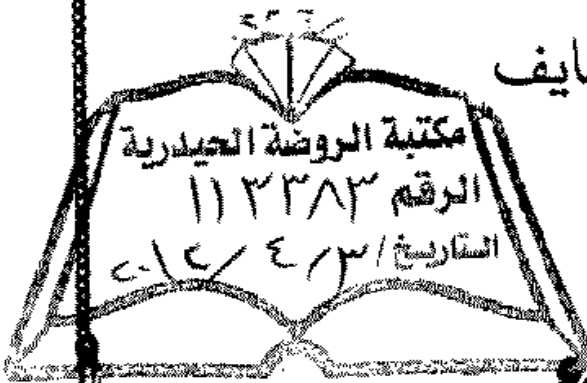 ايف
مكتبة الروضة الحيدرية
الرقم ١١٣٣٨٣
التاريخ / ٣ / ٤ / ٢٠١٢